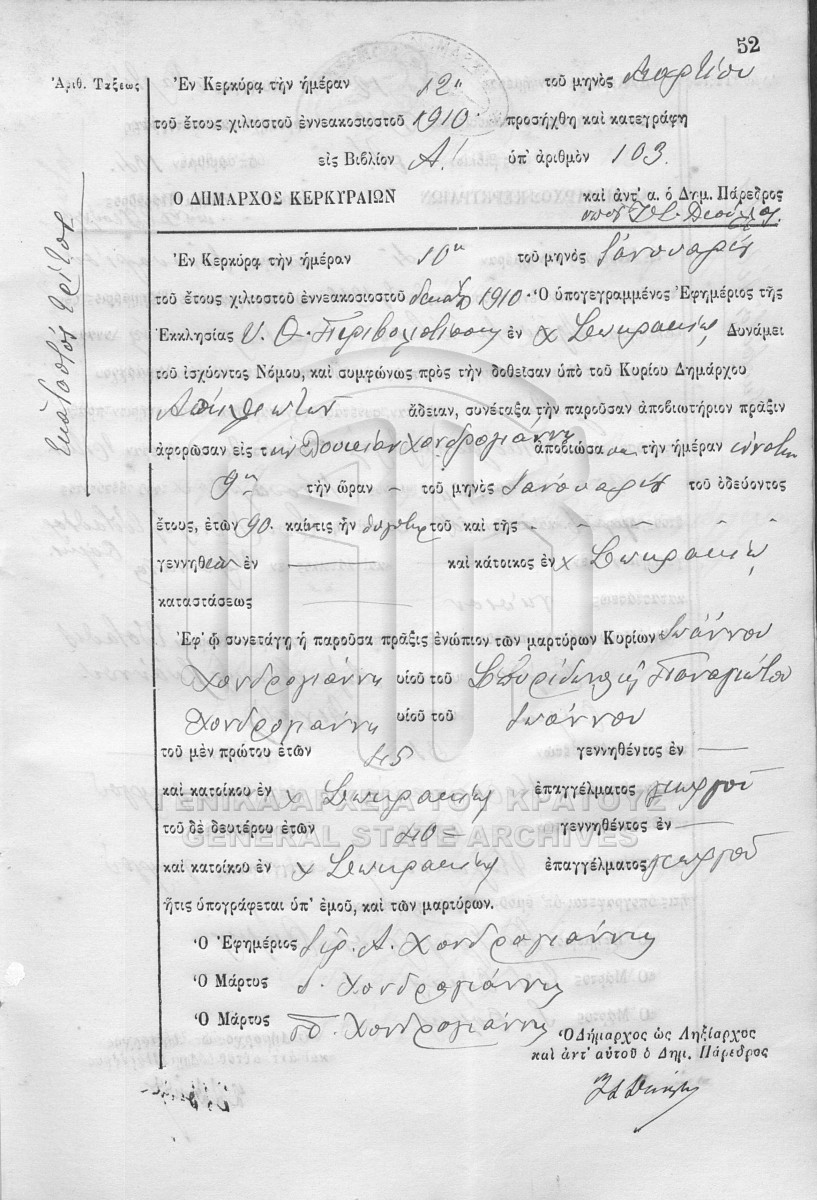 52
Ἀριθ. Τάξεως
Ἐν Κερκύρᾳ τὴν ἡμέραν 12η τοῦ μηνὸς Μαρτίου
τοῦ ἔτους χιλιοστοῦ ἐννεακοσιοστοῦ 1910 προσήχθη καὶ κατεγράφη
εἰς Βιβλίον Α! ὑπ' ἀριθμὸν 103.
Ο ΔΗΜΑΡΧΟΣ ΚΕΡΚΥΡΑΙΩΝ καὶ ἀντ' α. ὁ Δημ. Πάρεδρος
Ἑκατοστὸς τρίτος
Ἐν Κερκύρᾳ τὴν ἡμέραν 10η τοῦ μηνὸς Ἰανουαρίου
τοῦ ἔτους χιλιοστοῦ ἐννεακοσιοστοῦ δεκάτου 1910 Ὁ ὑπογεγραμμένος Ἐφημέριος τῆς
Ἐκκλησίας Υ. Θ. Περιβολιωτίσσης ἐν χ Δυνάμει
τοῦ ἰσχύοντος Νόμου, καὶ συμφώνως πρὸς τὴν δοθεῖσαν ὑπὸ τοῦ Κυρίου Δημάρχου
ἄδειαν, συνέταξα τὴν παροῦσαν ἀποβιωτήριον πρᾶξιν
ἀφορῶσαν εἰς τὴν Χονδρογιάννη ἀποβιώσασαν τὴν ἡμέραν ἐνάτην
9η τὴν ὥραν – τοῦ μηνὸς Ἰανουαρίου τοῦ ὁδεύοντος
ἔτους, ἐτῶν 90. καὶτις ἦν θυγάτηρ τοῦ καὶ τῆς – – – – –
γεννηθεῖσα ἐν — καὶ κάτοικος ἐν χ
καταστάσεως —
Ἐφ' ᾧ συνετάγη ἡ παροῦσα πρᾶξις ἐνώπιον τῶν μαρτύρων Κυρίων Ἰωάννου
Χονδρογιάννη υἱοῦ τοῦ Σπυρίδωνος ἢ Παναγιώτου
Χονδρογιάννη υἱοῦ τοῦ Ἰωάννου
τοῦ μὲν πρώτου ἐτῶν 45 γεννηθέντος ἐν —
καὶ κατοίκου ἐν χ ἐπαγγέλματος γεωργοῦ
ΓΕΝΙΚΑ ΑΡΧΕΙΑ ΤΟΥ ΚΡΑΤΟΥΣ
τοῦ δὲ δευτέρου ἐτῶν 40 – γεννηθέντος ἐν —
GENERAL STATE ARCHIVES
καὶ κατοίκου ἐν χ ἐπαγγέλματος γεωργοῦ
ἥτις ὑπογράφεται ὑπ' ἐμοῦ, καὶ τῶν μαρτύρων.
Ὁ Ἐφημέριος Α. Χονδρογιάννης
Ὁ Μάρτυς Χονδρογιάννης
Ὁ Μάρτυς Χονδρογιάννης
Ὁ Δήμαρχος ὡς Ληξίαρχος
καὶ ἀντ' αὐτοῦ ὁ Δημ. Πάρεδρος